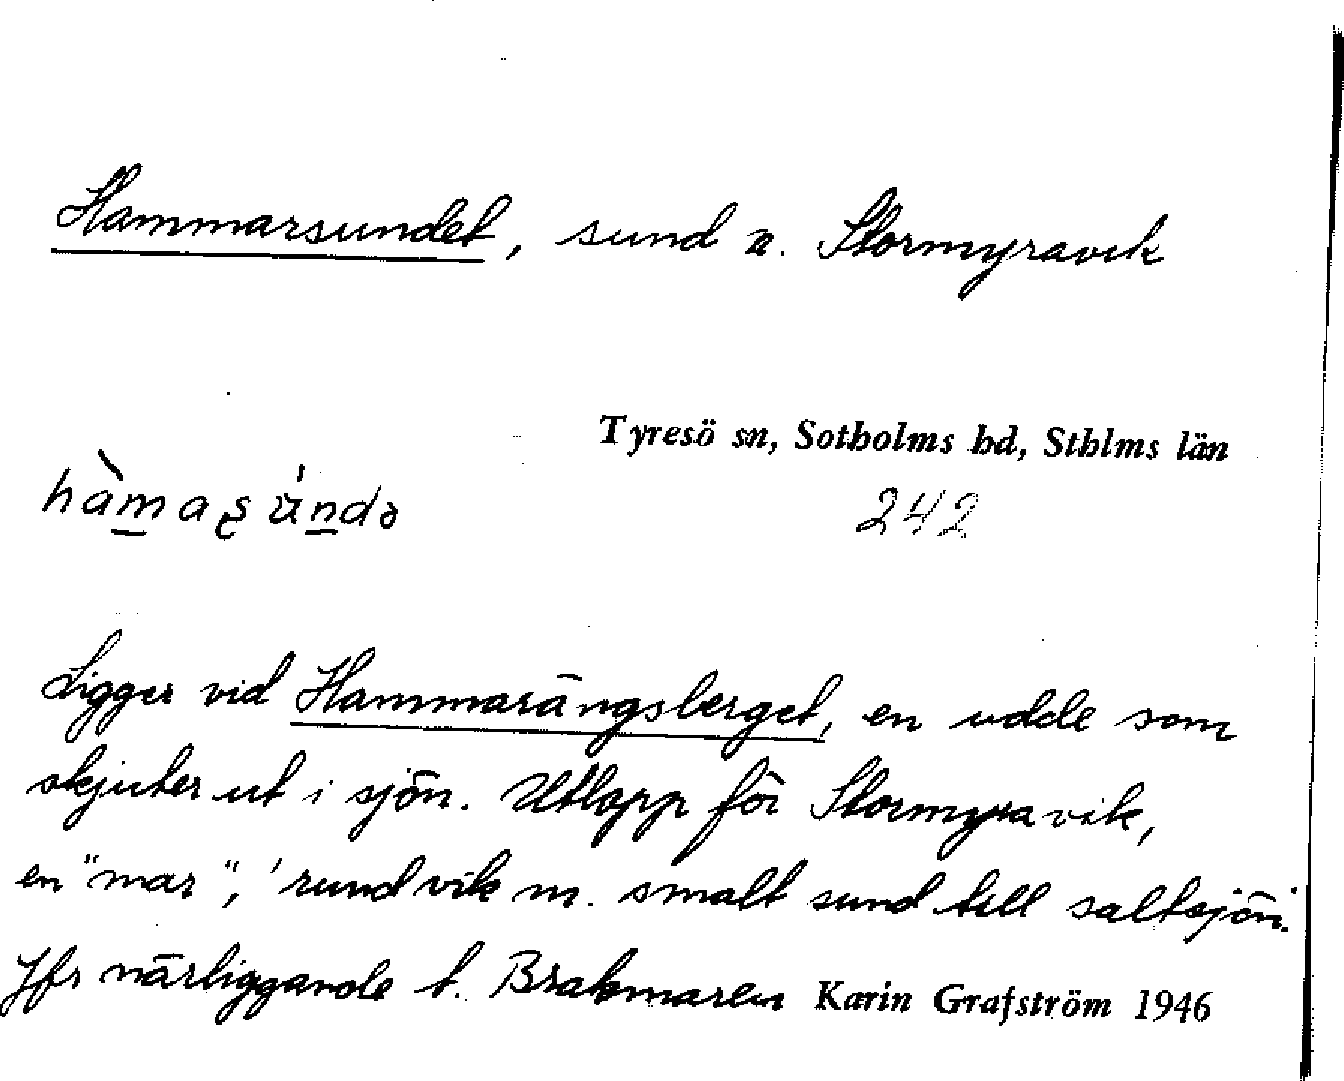 Hammarsundet, sund n. Stormyravik
Tyresö sn, Sotholms hd, Sthlms län
hàmaʂúndə
242
Ligger vid Hammarängsberget, en udde som
skjuter ut i sjön. Utlopp för Stormyravik,
en "mar", 'rund vik m. smalt sund till saltsjön'.
Jfr närliggande t. Brakmaren Karin Grafström 1946